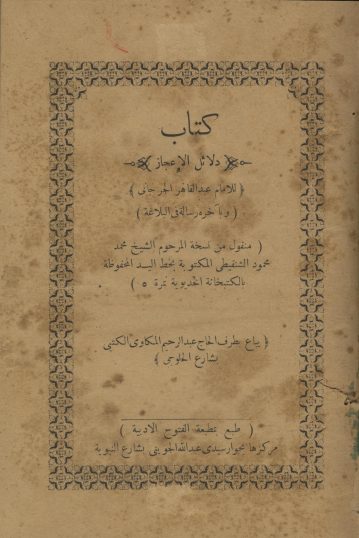 كتاب
دلائل الإعجاز
﴿ للامام عبد القاهر الجرجانى ﴾
( وبآخره رسالة فى البلاغة )
( منقول من نسخة المرحوم الشيخ محمد
محمود الشنقيطى المكتوبة بخط اليد المحفوظة
بالكتبخانة الخديوية نمرة ٥ )
﴿ يباع بطرف الحاج عبد الرحيم المكاوى الكتبى
بشارع الحلوجى ﴾
( طبع بمطبعة الفتوح الادبية )
مركزها بجوار سيدى عبد الله الجوينى بشارع النبوية